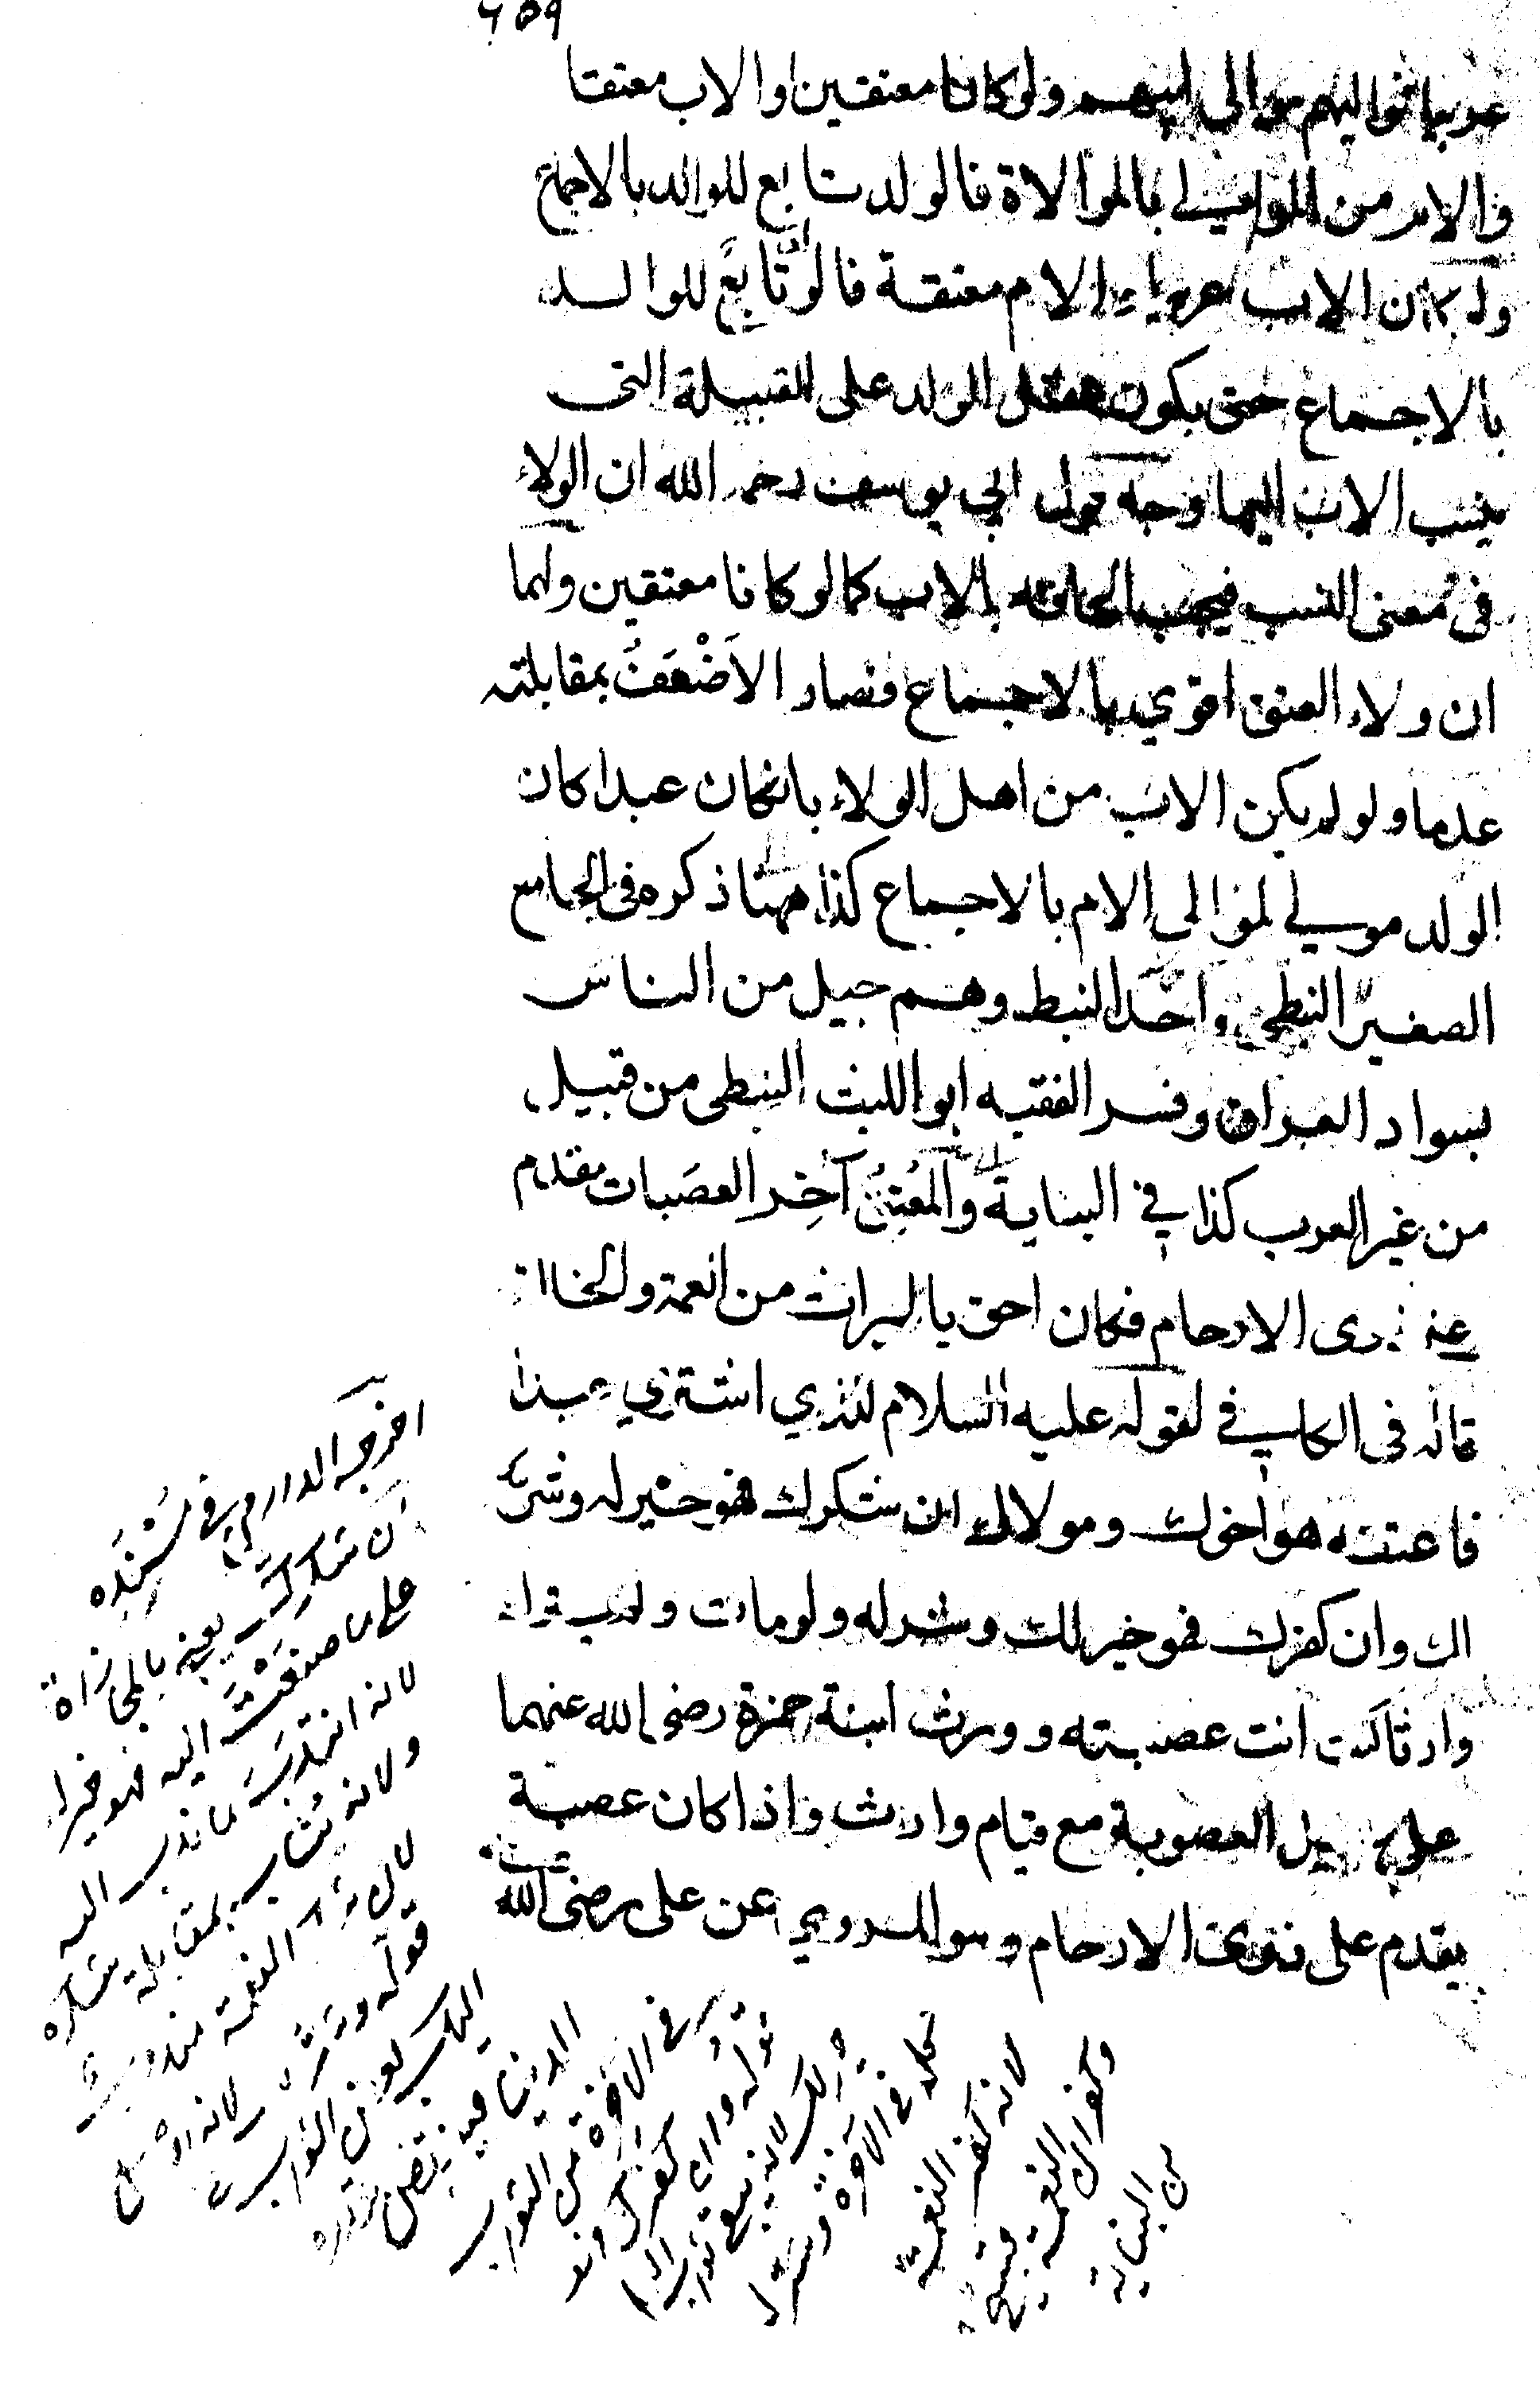 ٦٥٩
عربيا فمواليهم موالي ابيهم ولو كانا معتقين او الاب معتقا
والام من الموالي بالموالاة فالولد تابع للوالد بالاجماع
ولو كان الاب عربيا والام معتقة فالولد تابع للوالد
بالاجماع حتى يكون عقل الولد على القبيلة التى
ينسب الاب اليها وجه قول ابي يوسف رحمه الله ان الولاء
فى معنى النسب فيجب الحاقه بالاب كما لو كانا معتقين ولهما
ان ولاء العتق اقوي بالاجماع فصار الاَضْعَفُ بمقابلته
عدما ولو لم يكن الاب من اهل الولاء بان كان عبدا كان
الولد مولي لموالى الام بالاجماع كذا ههنا ذكره فى الجامع
الصغير النبطي واحد النبط وهم جيل من الناس
بسواد العراق وفسر الفقيه ابو الليث النبطى من قبيل
من غير العرب كذا في البناية والمُعتِقُ آخِر العصَبات مقدم
على ذوى الارحام فكان احق بالميراث من العمة والخالة
قاله فى الكافي لقوله عليه السلام للذي اشتري عبدا
فاعتقه هو اخوك ومولاك ان شكرك فهو خير له وشرٌّ
لك وان كفرك فهو خير لك وشر له ولو مات ولم يترك
وارثا كنت انت عصبته وورث ابنة حمزة رضى الله عنهما
على سبيل العصوبة مع قيام وارث واذا كان عصبة
يقدم على ذوى الارحام وهو المروي عن على رضى الله
اخرجه الدارمي في مُسْنَدِه
ان شكرك يعنى بالمجازاة
على ما صنعْتَ اليه فهو خير له
لانه انتدب ما ندب اليه
ولانه يُثاب بمقابلة شكره
لان شكر النعمة مندوب
قوله وشرٌّ لك لانه اوصل
اليك بعض الثواب
الدنيا فينتقص بقدره
فى الاخرة من الثواب
قوله وان كفرك فهو
خير لك لانه يبقى ثواب العمل
كله فى الآخرة وشر له
لانه كفر النعمة
وكفران النعمة قبيح
من البناية